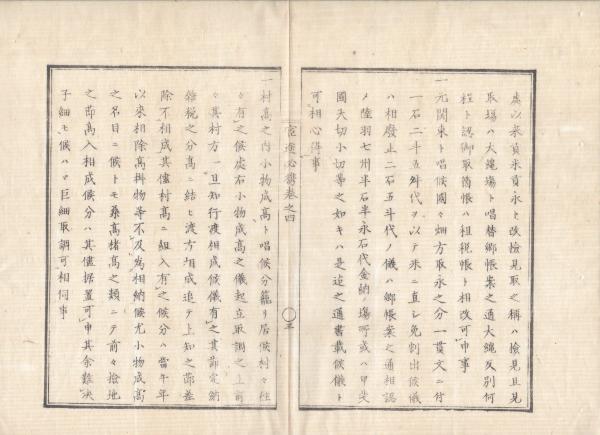 虞以来貢米貢永ト改検見取之称ハ検見且見
取場ハ大縄場ト唱替郷帳案之通大縄反別何
程ト認御取箇帳ハ租税帳ト相改可申事
一元関東ト唱候國々畑方取永之分一貫文ニ付
一石二斗五舛代ヲ以テ米ニ直シ免割出候儀
ハ相廃止二石五斗代ノ儀ハ郷帳案之通相認
ノ陸羽七州半石半永石代金納ノ場所或ハ甲斐
國大切小切等之如キハ是迄之通書載候儀ト
可相心得事
巻之四
一村高之内小物成高ト唱候分籠リ居候村々往
々有之候處右小物成高之儀起立取調之上前
々其村方一旦知行渡相成候儀有之其節定納
雑税之分高ニ結ヒ渡方相成追テ上知之節差
除不相成其儘村高ニ組入有之候分ハ當午年
以来相除高掛物等不及為相納候尤小物成高
之名目ニ候トモ桑高楮高之類ニテ前々撿地
之節高入相成候分ハ其儘据置可申其余難决
子細モ候ハヽ巨細取調可相伺事